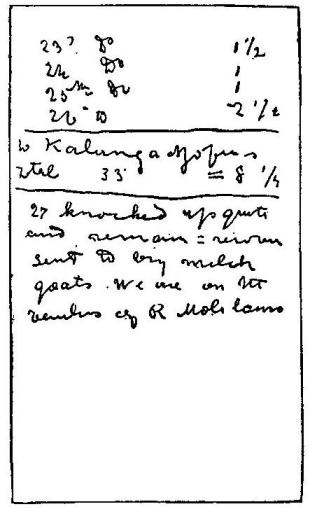 23? Do 1 1/2
24 Do 1
25th Do 1
26 " D 2 1/2
to Kalunganjofus
ztal 33 = 8 1/4
27 knocked up quite
and remain = 
sent to buy milch
goats. We are on the
banks of R Molilamo